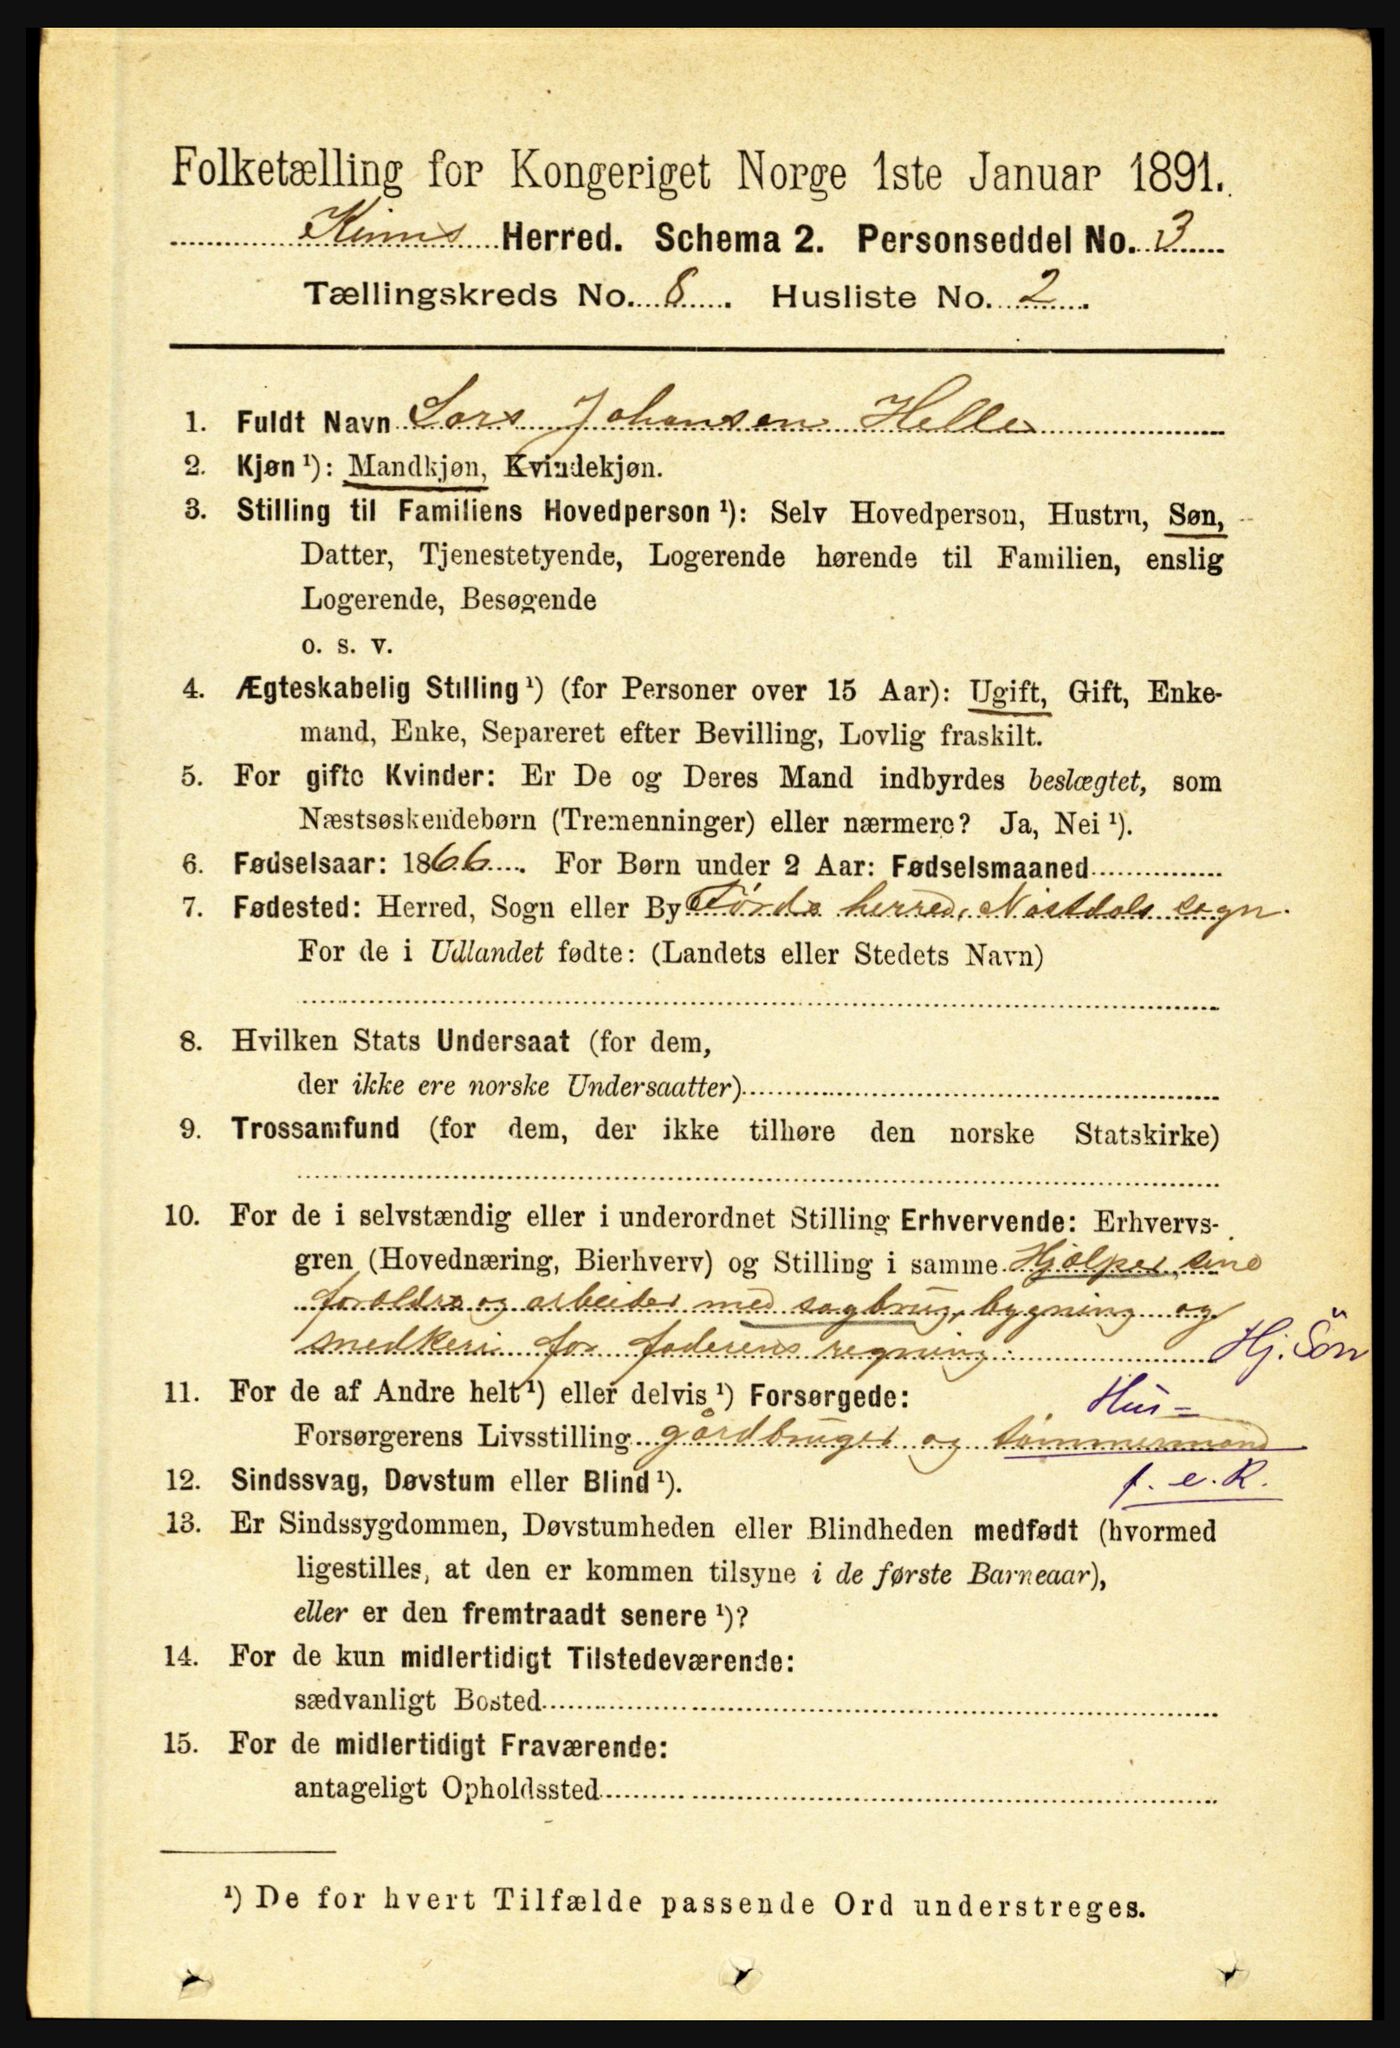 Folketælling for Kongeriget Norge 1ste Januar 1891.
Kinns Herred. Schema 2. Personseddel No. 3
Tællingskreds No. 8. Husliste No. 2.
1. Fuldt Navn Lars Johansen Helle
2. Kjøn ¹): Mandkjøn, Kvindekjøn.
3. Stilling til Familiens Hovedperson ¹): Selv Hovedperson, Hustru, Søn,
Datter, Tjenestetyende, Logerende hørende til Familien, enslig
Logerende, Besøgende
o. s. v.
4. Ægteskabelig Stilling ¹) (for Personer over 15 Aar): Ugift, Gift, Enke-
mand, Enke, Separeret efter Bevilling, Lovlig fraskilt.
5. For gifte Kvinder: Er De og Deres Mand indbyrdes beslægtet, som
Næstsøskendebørn (Tremenninger) eller nærmere? Ja, Nei ¹).
6. Fødselsaar: 1866. For Børn under 2 Aar: Fødselsmaaned
7. Fødested: Herred, Sogn eller By Førde herred, Nøstdals sogn.
For de i Udlandet fødte: (Landets eller Stedets Navn)
8. Hvilken Stats Undersaat (for dem,
der ikke ere norske Undersaatter)
9. Trossamfund (for dem, der ikke tilhøre den norske Statskirke)
10. For de i selvstændig eller i underordnet Stilling Erhvervende: Erhvervs-
gren (Hovednæring, Bierhverv) og Stilling i samme Hjælper sine
forældre og arbeider med sagbrug, bygning og
snedkeri for faderens regning. Hj. Sön
11. For de af Andre helt ¹) eller delvis ¹) Forsørgede:
Hus-
Forsørgerens Livsstilling gårdbruger og tømmermand
f. e. R.
12. Sindssvag, Døvstum eller Blind ¹).
13. Er Sindssygdommen, Døvstumheden eller Blindheden medfødt (hvormed
ligestilles, at den er kommen tilsyne i de første Barneaar),
eller er den fremtraadt senere ¹)?
14. For de kun midlertidigt Tilstedeværende:
sædvanligt Bosted
15. For de midlertidigt Fraværende:
antageligt Opholdssted
¹) De for hvert Tilfælde passende Ord understreges.